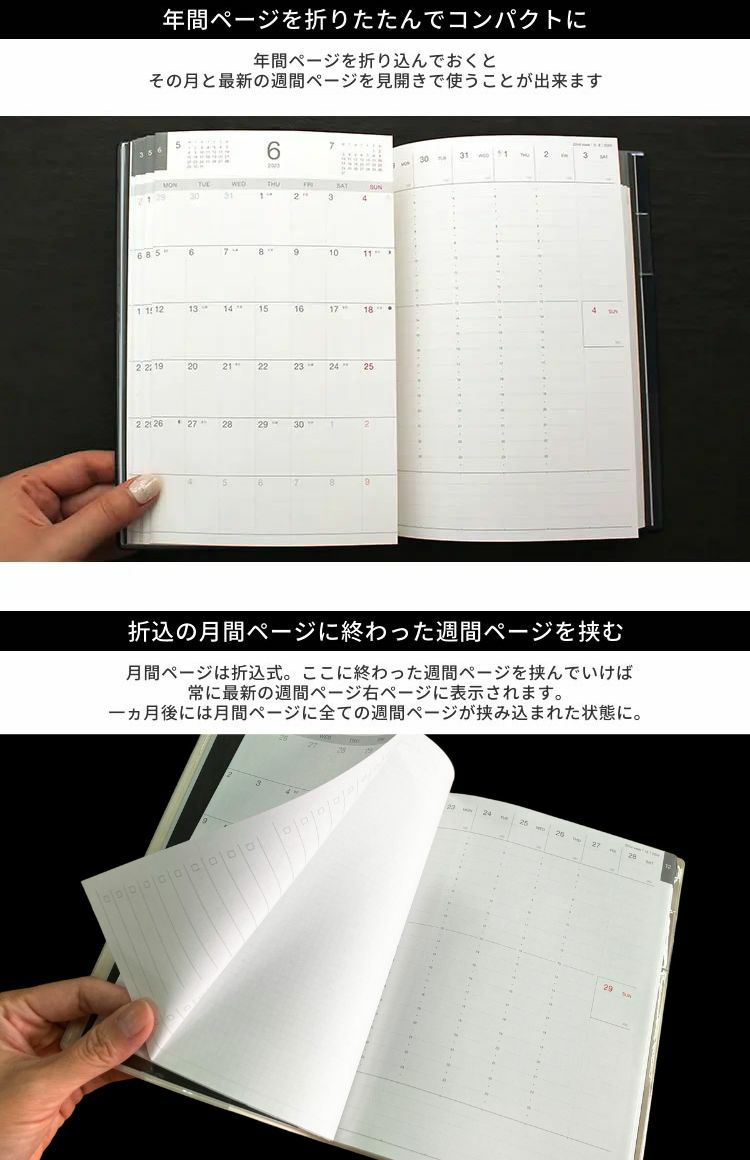 年間ページを折りたたんでコンパクトに
年間ページを折り込んでおくと
その月と最新の週間ページを見開きで使うことが出来ます
3 5 6
5
6
2023
7
MON TUE WED THU FRI SAT SUN
2 1 29 30 31 1 2 3 4
6 8 5 6 7 8 9 10 11
12 13 14 15 16 17 18
19 20 21 22 23 24 25
26 27 28 29 30 1 2
4 5 6 7 8 9
MON 30 TUE 31 WED 1 THU 2 FRI 3 SAT
4 SUN
折込の月間ページに終わった週間ページを挟む
月間ページは折込式。ここに終わった週間ページを挟んでいけば
常に最新の週間ページ右ページに表示されます。
一ヵ月後には月間ページに全ての週間ページが挟み込まれた状態に。
26 27 28
2 3 4
9
23 MON 24 TUE 25 WED 26 THU 27 FRI 28 SAT
12
29 SUN